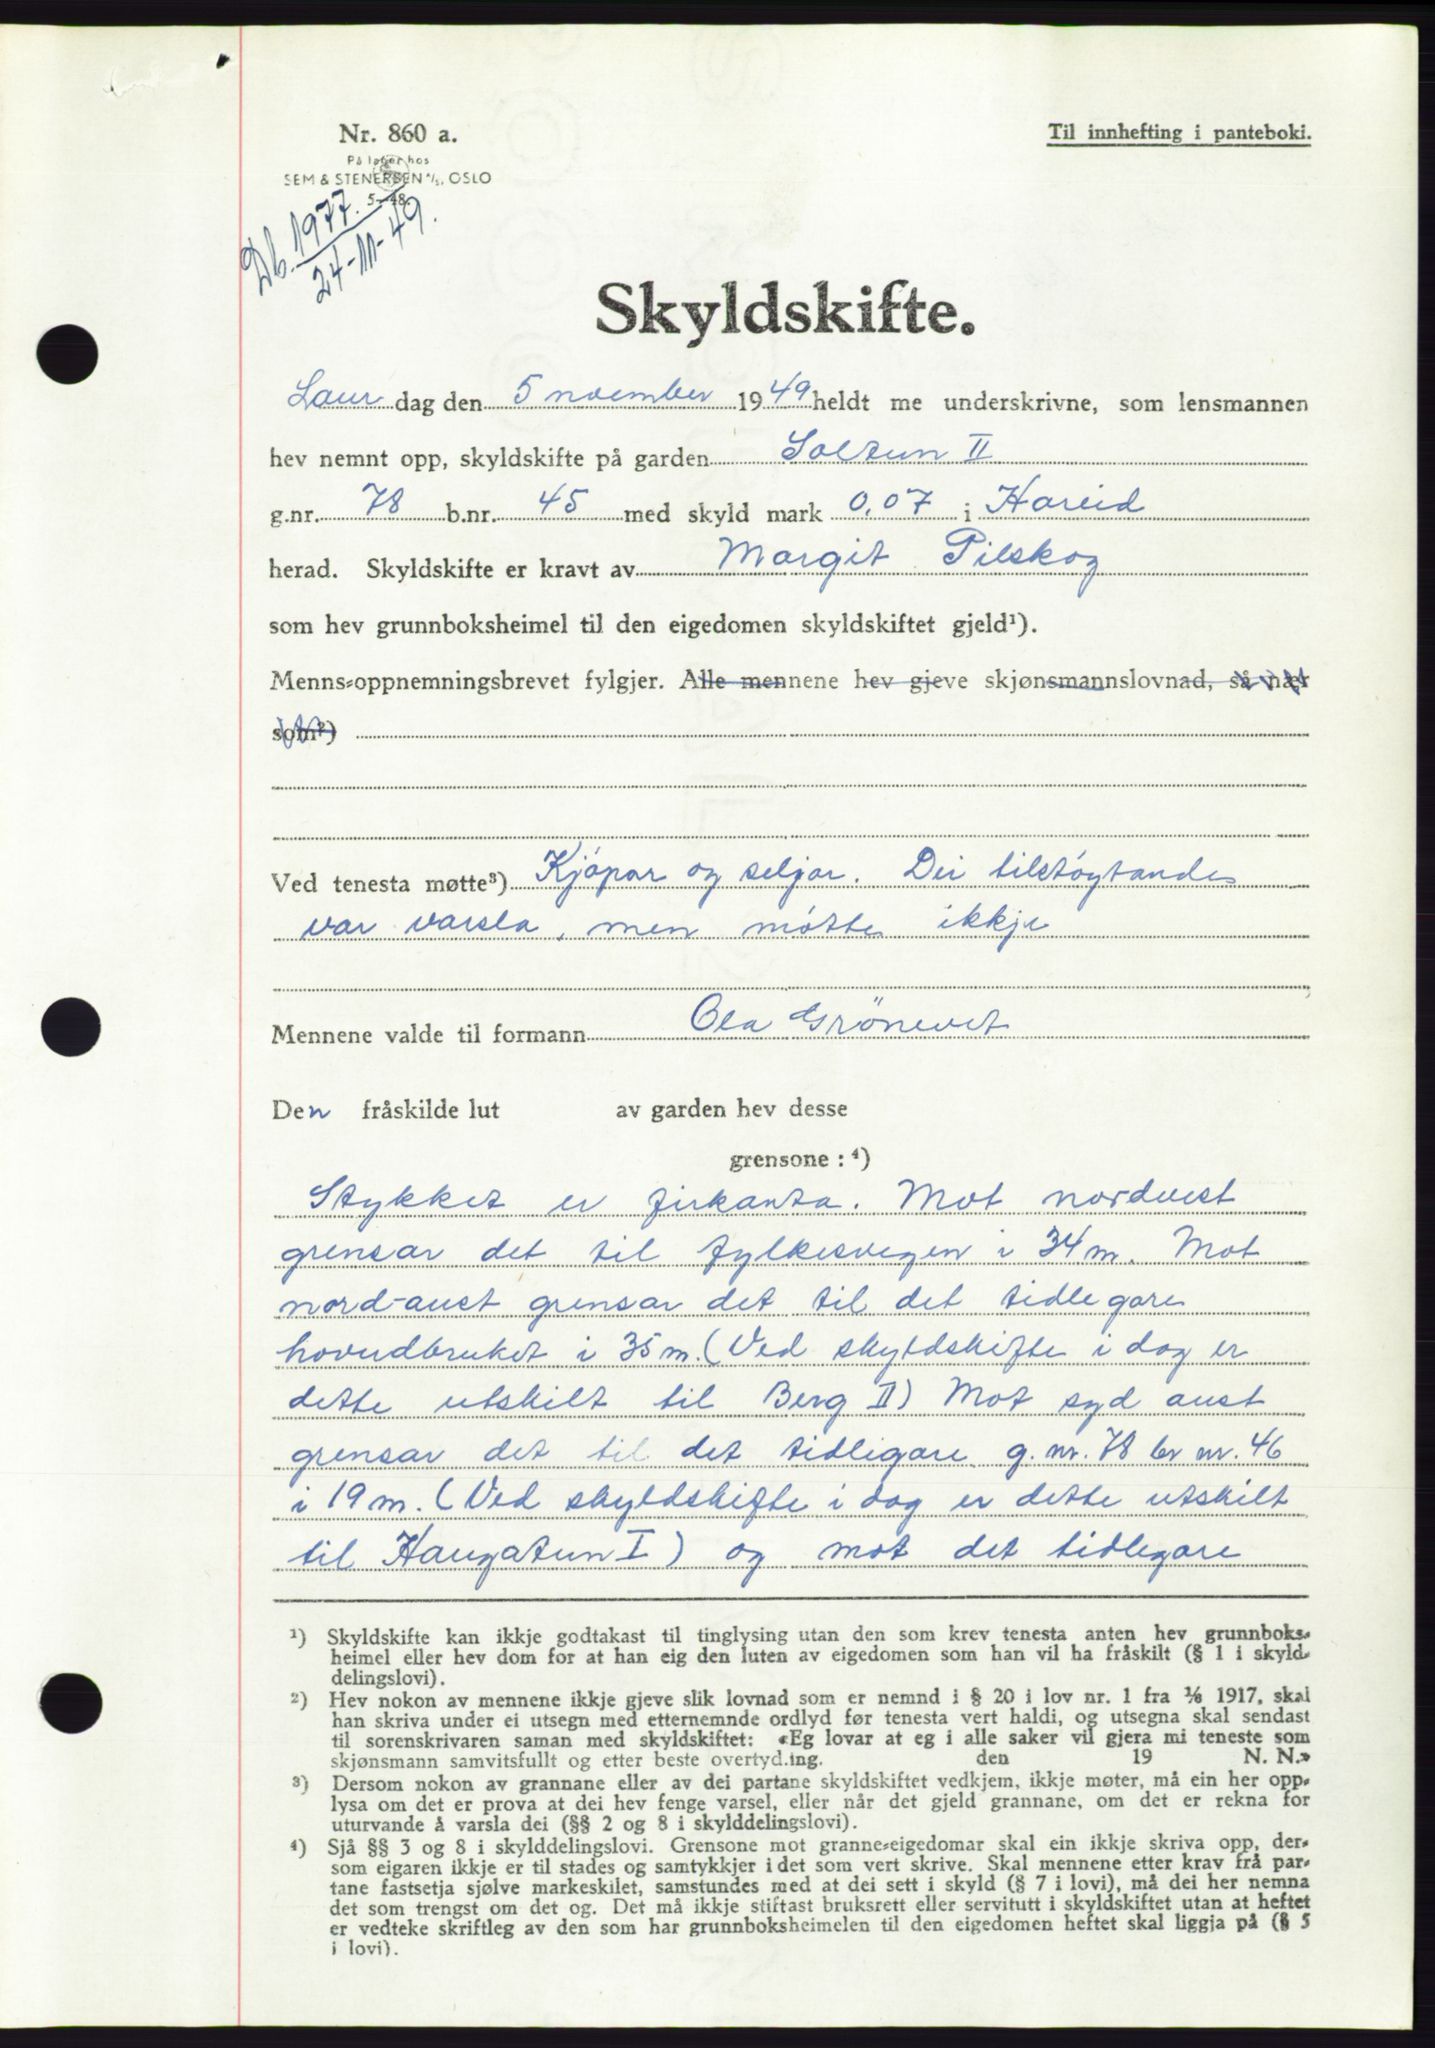 Nr. 860 a.
På lager hos
SEM & STENERSEN A/S, OSLO
5-48.
Til innhefting i panteboki.
Db. 1977.
24-11-49.
Skyldskifte.
Laur dag den 5 november 1949 heldt me underskrivne, som lensmannen
hev nemnt opp, skyldskifte på garden Soltun II
g.nr. 78 b.nr. 45 med skyld mark 0,07 i Hareid
herad. Skyldskifte er kravt av Margit Pilskog
som hev grunnboksheimel til den eigedomen skyldskiftet gjeld¹).
Menns-oppnemningsbrevet fylgjer. Alle mennene hev gjeve skjønsmannslovnad, så nær
som²)
Ved tenesta møtte³) Kjøpar og seljar. Dei tilstøytande
var varsla, men møtte ikkje
Mennene valde til formann Ola Grönevet
Den fråskilde lut av garden hev desse
grensone : ⁴)
Stykket er firkanta. Mot nordvest
grensar det til fylkesvegen i 34 m. Mot
nord-aust grensar det til det tidlegare
hovudbruket i 35 m. (Ved skyldskifte i dag er
dette utskilt til Berg II) Mot syd aust
grensar det til det tidligare g. nr. 78 br nr. 46
i 19 m. (Ved skyldskifte i dag er dette utskilt
til Haugatun I) og mot det tidlegare
¹) Skyldskifte kan ikkje godtakast til tinglysing utan den som krev tenesta anten hev grunnboks-
heimel eller hev dom for at han eig den luten av eigedomen som han vil ha fråskilt (§ 1 i skyld-
delingslovi).
²) Hev nokon av mennene ikkje gjeve slik lovnad som er nemnd i § 20 i lov nr. 1 fra ¹/₆ 1917, skal
han skriva under ei utsegn med etternemnde ordlyd før tenesta vert haldi, og utsegna skal sendast
til sorenskrivaren saman med skyldskiftet: «Eg lovar at eg i alle saker vil gjera mi teneste som
skjønsmann samvitsfullt og etter beste overtyding. den 19 N. N.»
³) Dersom nokon av grannane eller av dei partane skyldskiftet vedkjem, ikkje møter, må ein her opp-
lysa om det er prova at dei hev fenge varsel, eller når det gjeld grannane, om det er rekna for
uturvande å varsla dei (§§ 2 og 8 i skylddelingslovi).
⁴) Sjå §§ 3 og 8 i skylddelingslovi. Grensone mot granne-eigedomar skal ein ikkje skriva opp, der-
som eigaren ikkje er til stades og samtykkjer i det som vert skrive. Skal mennene etter krav frå par-
tane fastsetja sjølve markeskilet, samstundes med at dei sett i skyld (§ 7 i lovi), må dei her nemna
det som trengst om det og. Det må ikkje stiftast bruksrett eller servitutt i skyldskiftet utan at heftet
er vedteke skriftleg av den som har grunnboksheimelen til den eigedomen heftet skal liggja på (§ 5
i lovi).